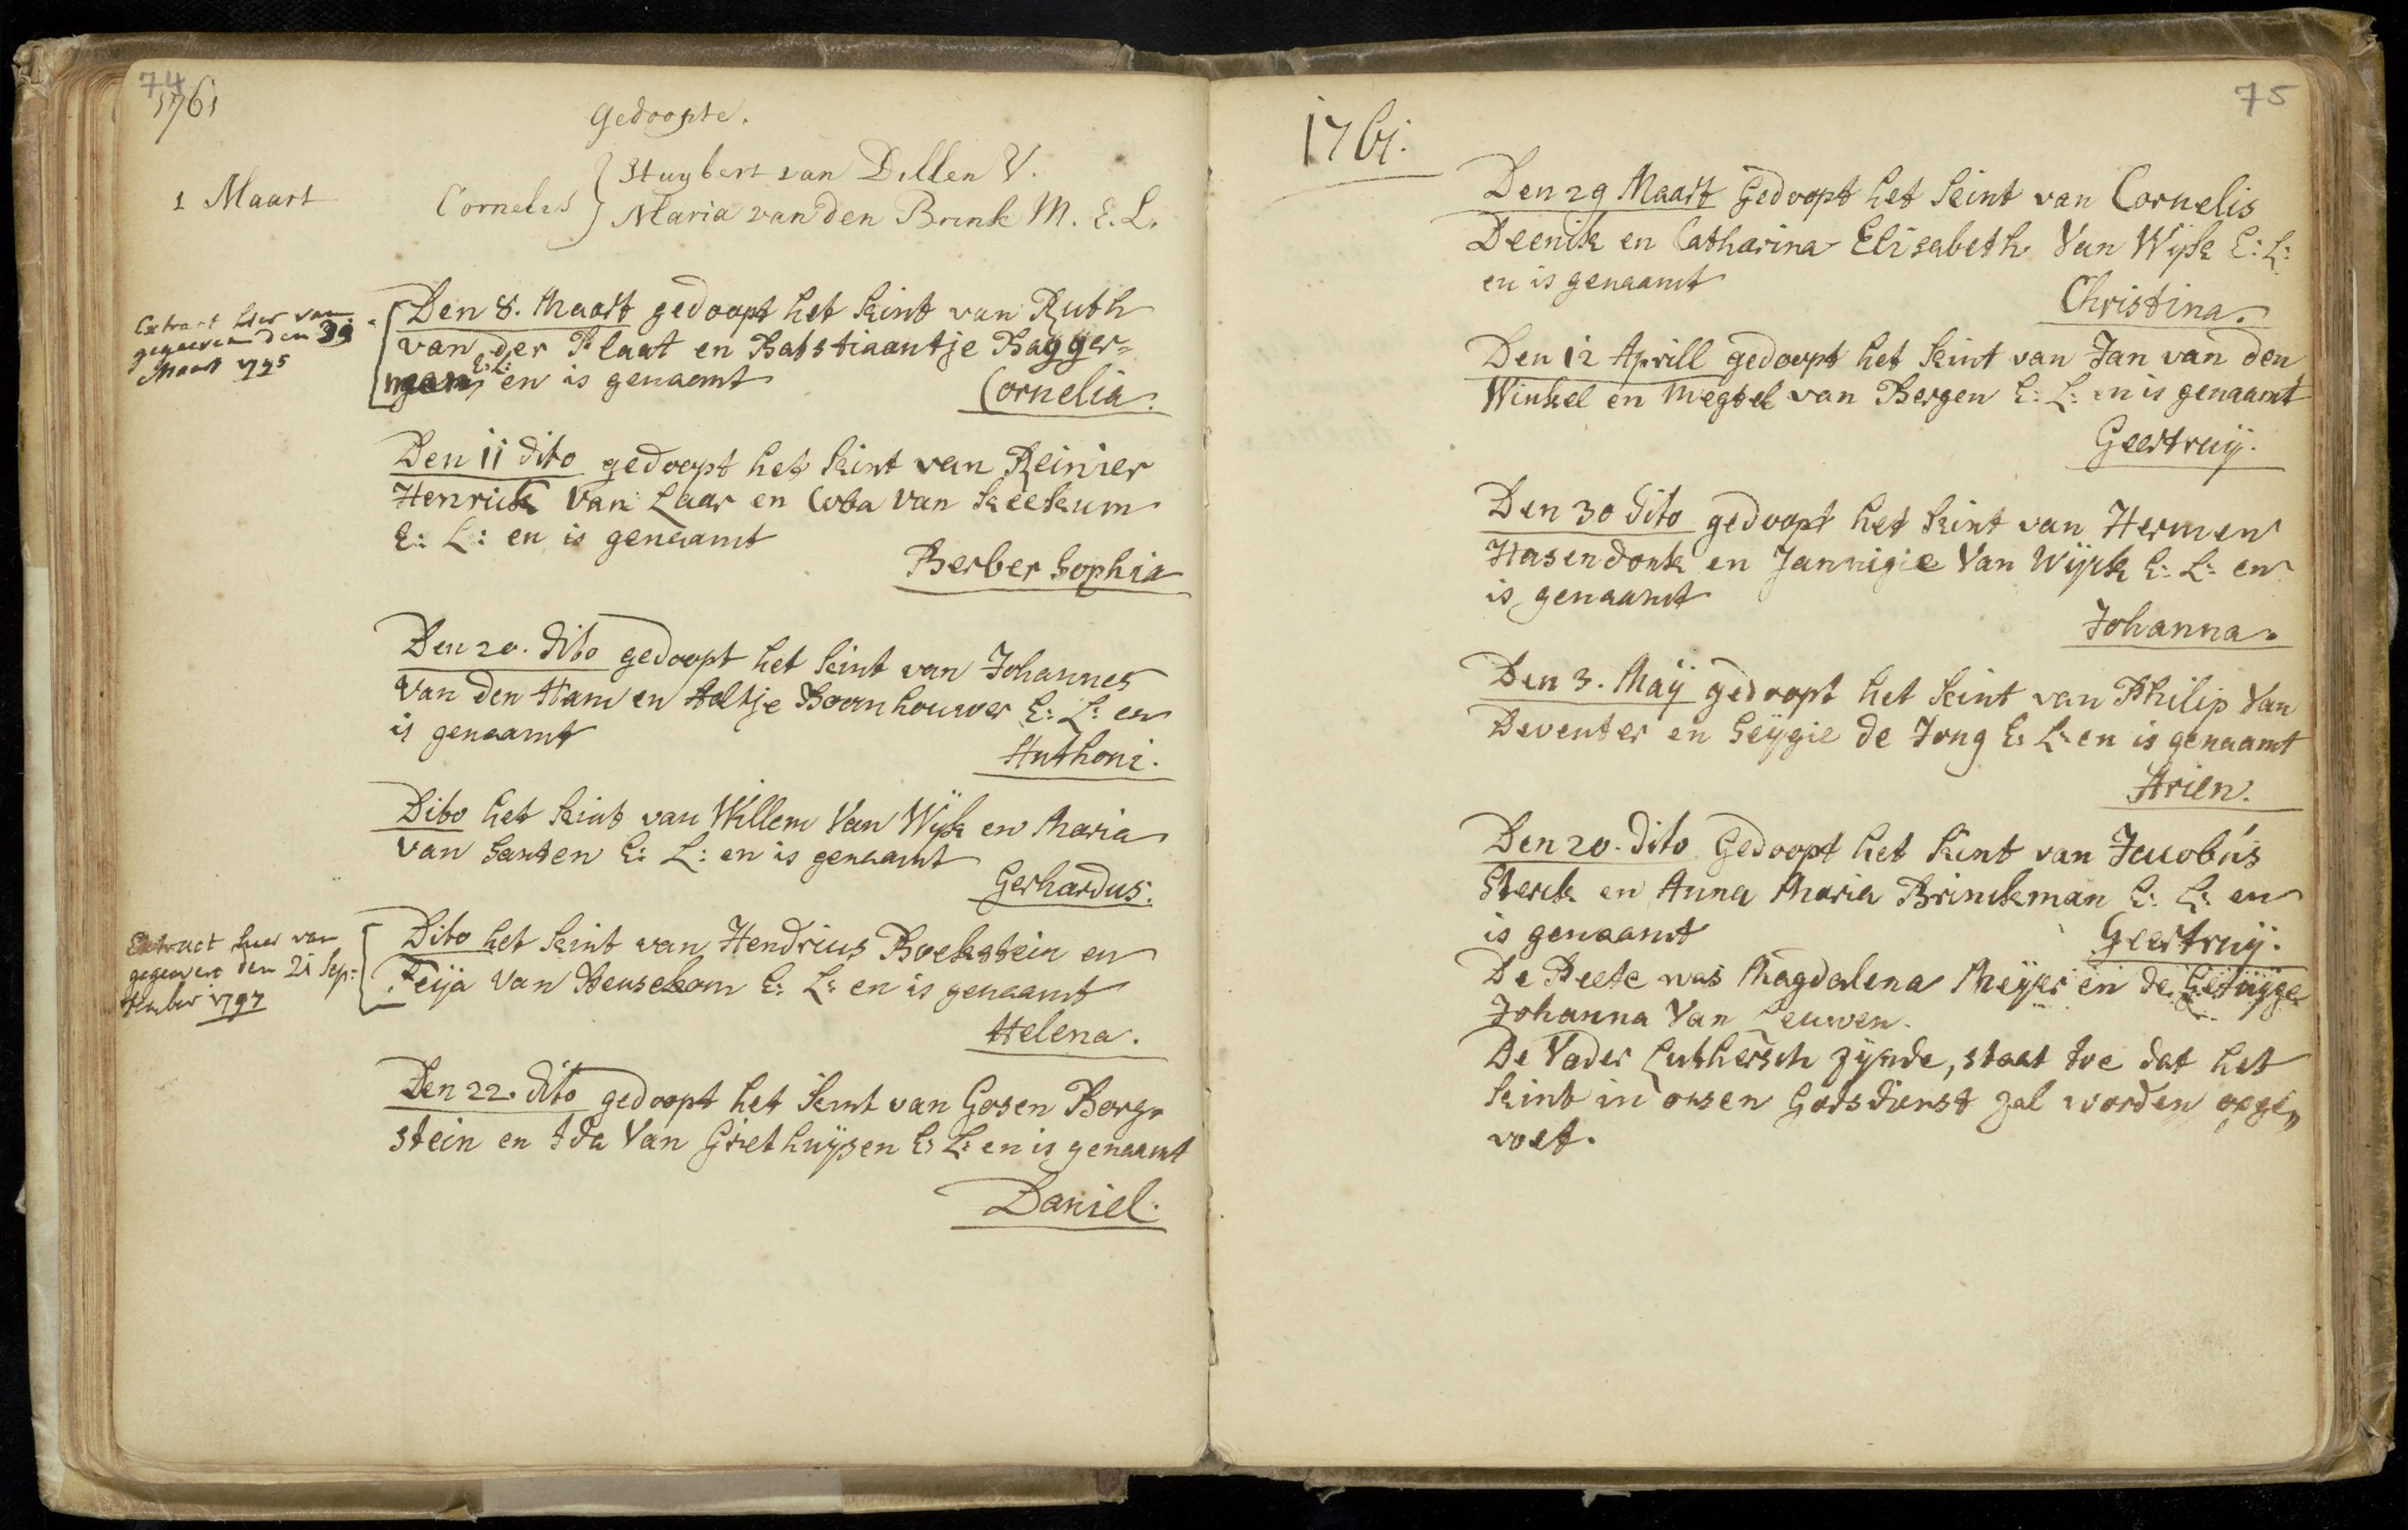 74
1761
Gedoopte.
1 Maart
Cornelis
Huybert van Dillen V.
Maria van den Brink M. E. L.
Extract hier van
gegeeven den 31
Maart 1795
Den 8. Maart gedoopt het kint van Ruth
van der Plaat en Batstiaantje Bagger=
man E: L: en is genaamt
Cornelia.
Den 11 dito gedoopt het kint van Reinier
Henrick van Laar en Coba van Keekum
E: L: en is genaamt
Berber Sophia
Den 20. dito gedoopt het kint van Johannes
van den Ham en Aeltje Boomhouwer E: L: en
is genaamt
Anthoni.
Dito het kint van Willem Van Wÿk en Maria
van Santen E: L: en is genaamt
Gerhardus.
Extract hier van
gegeeven den 21 Sep=
tember 1797
Dito het kint van Hendricus Boekstein en
Feija van Heusekom E: L: en is genaamt
Helena.
Den 22. dito gedoopt het kint van Gosen Borg=
stein en Ida Van Griethuÿsen E: L: en is genaamt
Daniel.
75
1761.
Den 29 Maart Gedoopt het kint van Cornelis
Deenik en Catharina Elisabeth Van Wÿk E: L:
en is genaamt
Christina.
Den 12 Aprill gedoopt het kint van Jan van den
Winkel en Megtel van Bergen E: L: en is genaamt
Geertruÿ.
Den 30 dito gedoopt het kint van Hermen
Hasendonk en Jannigie Van Wÿck E: L: en
is genaamt
Johanna.
Den 3. Maÿ gedoopt het kint van Philip Van
Deventer en Geÿgie de Jong E: L: en is genaamt
Arien.
Den 20. dito Gedoopt het kint van Jacobus
Sterck en Anna Maria Brinckman E: L: en
is genaamt
Geertruÿ.
De Peete was Magdalena Meÿer en de Getuÿge
Johanna Van Leuwen.
De Vader Luthersch zÿnde, staat toe dat het
kint in onsen Godsdienst zal worden opge„
voet.